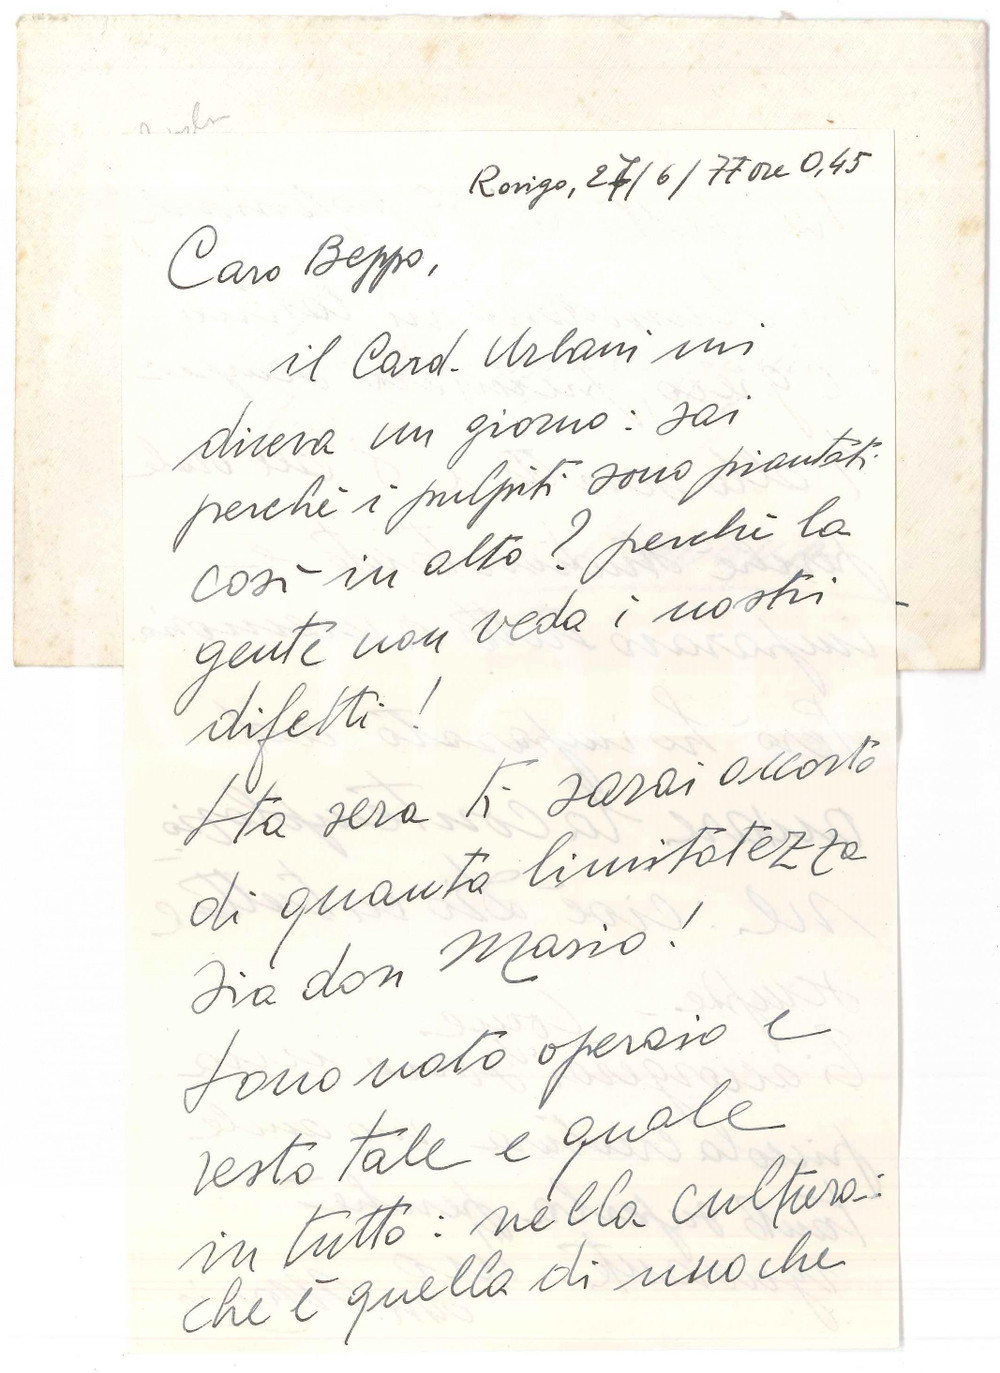 Rovigo, 27/6/77 ore 0,45
Caro Beppo,
il Card. Urbani mi
diceva un giorno: sai
perchè i pulpiti sono piantati
così in alto? perchè la
gente non veda i nostri
difetti!
Sta sera ti sarai accorto
di quanta limitatezza
sia don Mario!
Sono nato operaio e
resto tale e quale
in tutto: nella cultura:
che è quella di uno che